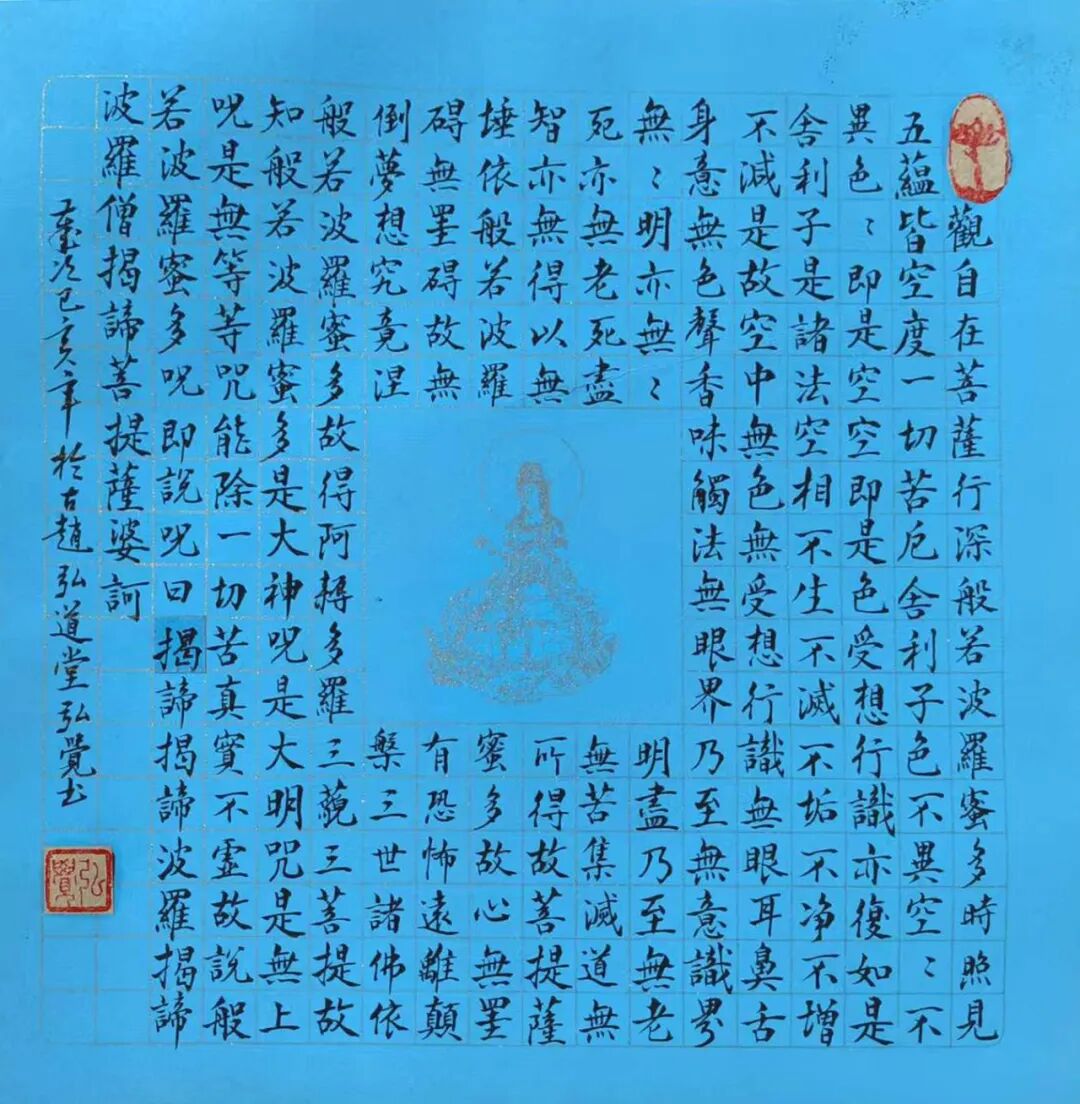 觀自在菩薩行深般若波羅蜜多時照見
五蘊皆空度一切苦厄舍利子色不異空〻不
異色〻即是空空即是色受想行識亦復如是
舍利子是諸法空相不生不滅不垢不净不增
不減是故空中無色無受想行識無眼耳鼻舌
身意無色聲香味觸法無眼界乃至無意識界
無〻明亦無〻明盡乃至無老
死亦無老死盡無苦集滅道無
智亦無得以無所得故菩提薩
埵依般若波羅蜜多故心無罣
碍無罣碍故無有恐怖遠離顛
倒夢想究竟涅槃三世諸佛依
般若波羅蜜多故得阿耨多羅三藐三菩提故
知般若波羅蜜多是大神呪是大明咒是無上
呪是無等等咒能除一切苦真實不虛故說般
若波羅蜜多呪即說呪曰揭諦揭諦波羅揭諦
波羅僧揭諦菩提薩婆訶
歲次己亥年於古趙弘道堂弘覺书
弘覺